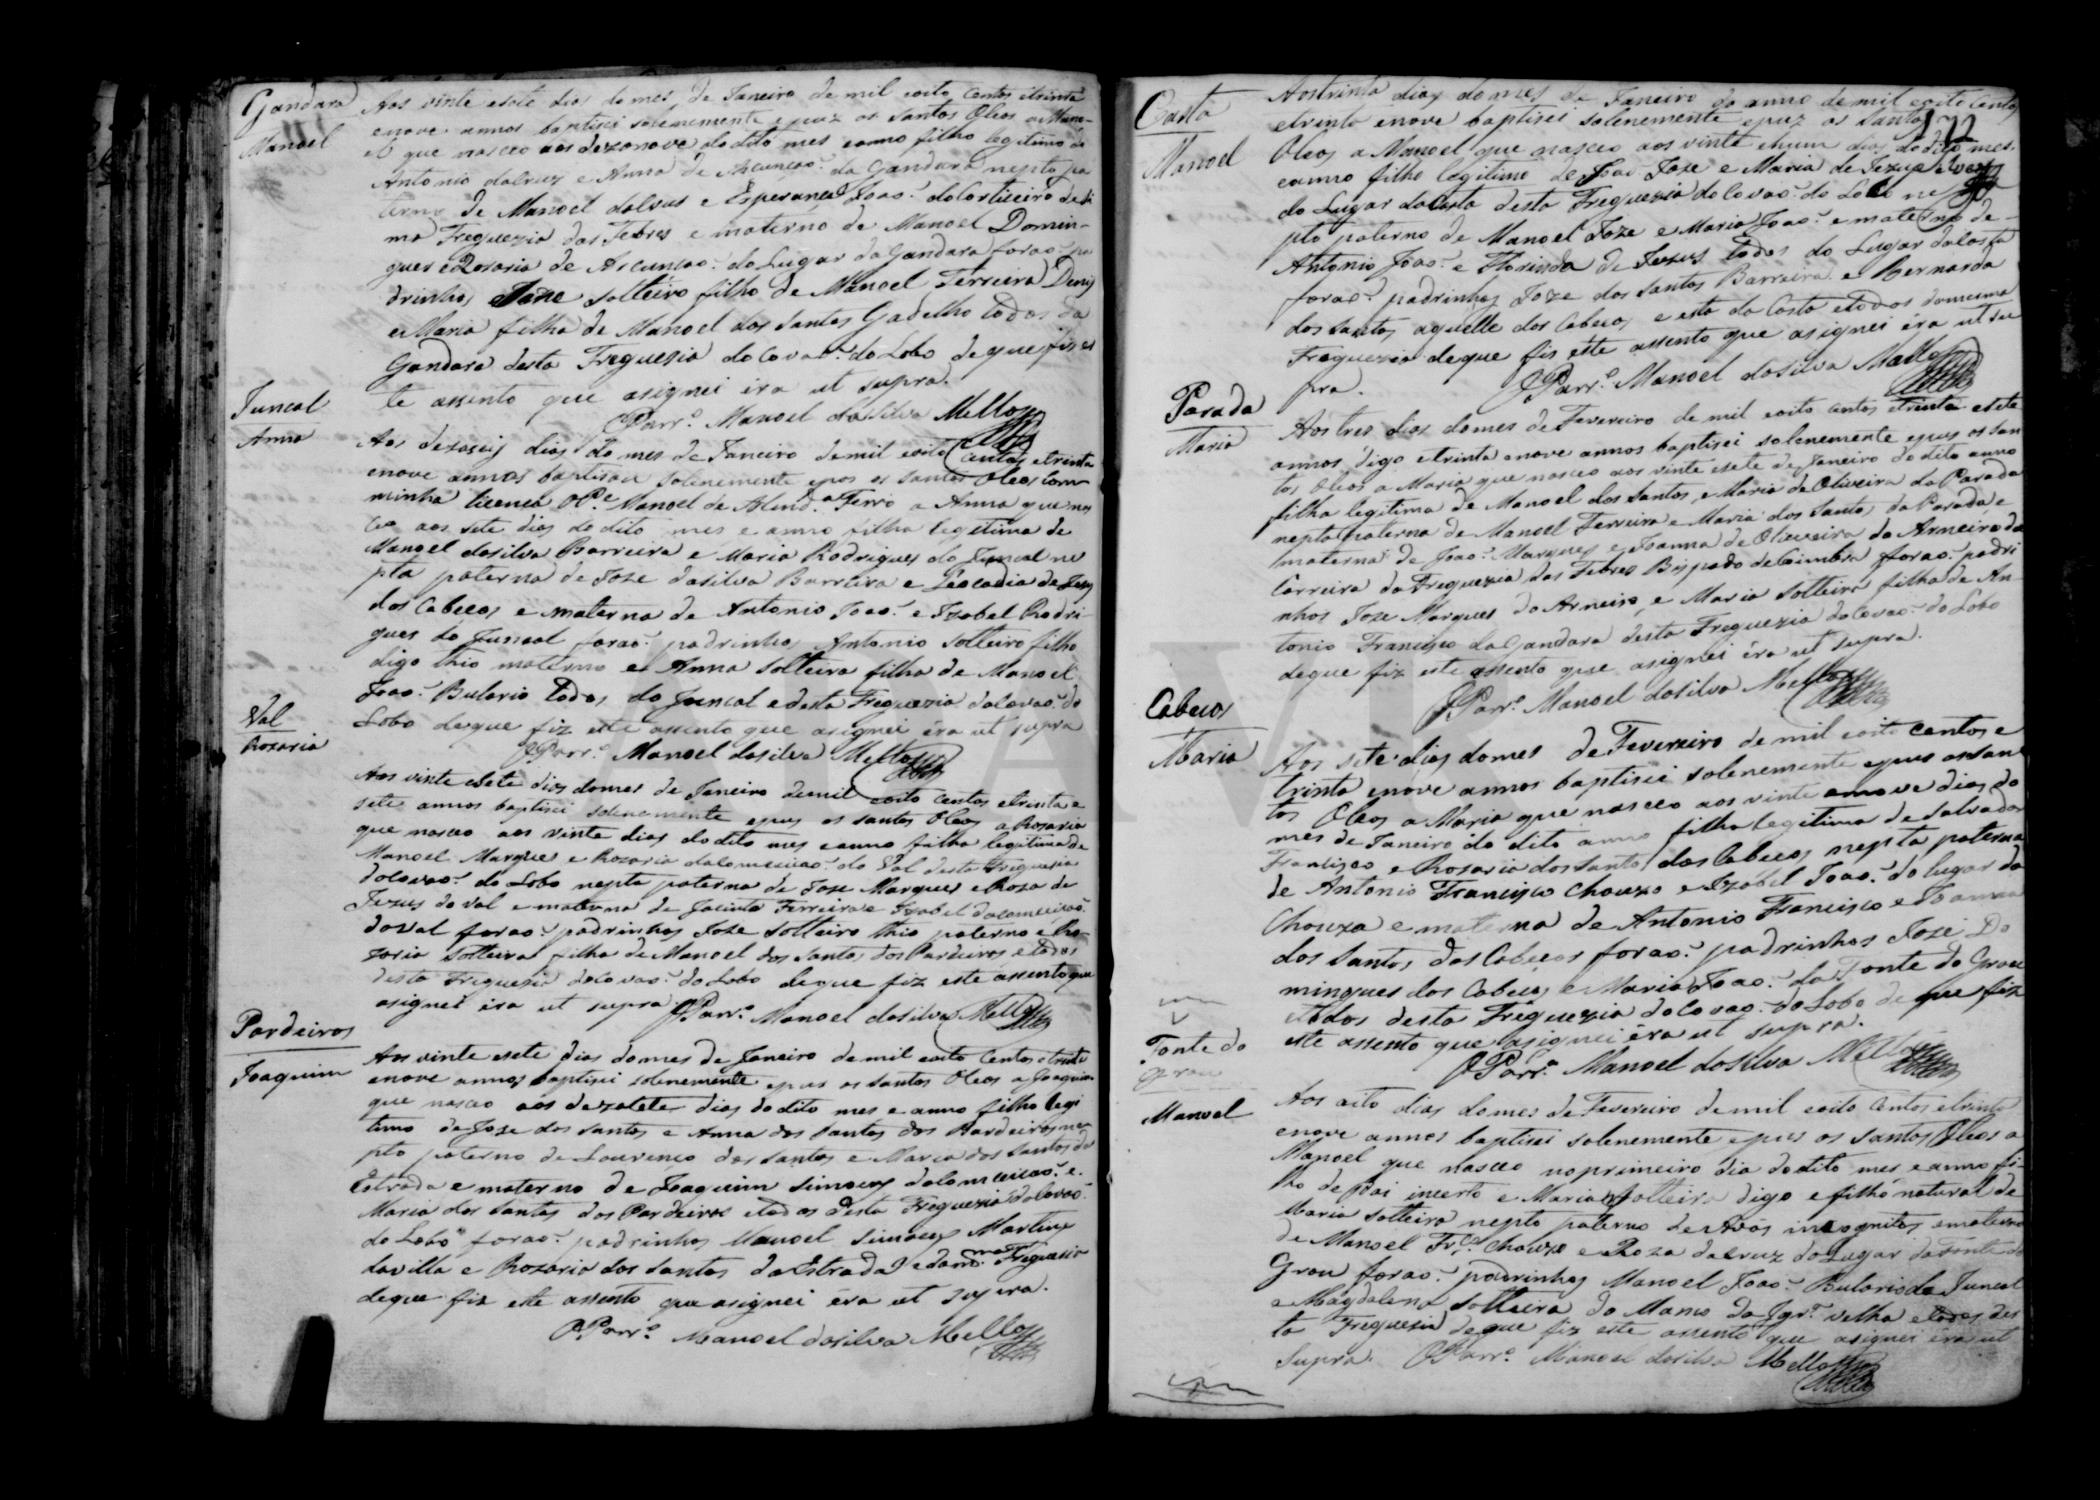 Gandara
Manoel
Aos vinte e sete dias do mes de Janeiro de mil eoito centos etrinta
enove annos baptisei solenemente epuz os Santos Oleos a Mano-
el que nasceo aos dezanove do dito mes eanno filho legitimo de
Antonio dalcruz e Anna de Ascuncao da Gandara nepto pa
terno de Manoel dalcrus e Esperanca Joao. do Corticeiro de
ma Freguezia das Febres e materno de Manoel Domin-
gues e Rosaria de Ascuncao. do Lugar da Gandara forao. pa
drinhos Joze solteiro filho de Manoel Ferreira Diniz
e Maria filha de Manoel dos Santos Gadelho todos da
Gandara desta Freguezia do Covao. do Lobo de que fis es
te assento que asignei era ut supra.
O Parr.º Manoel dasilva Mello
Juncal
Anna
Aos dezaseis dias do mes de Janeiro demil eoito centos etrinta
enove annos baptisou solenemente epos os santos Oleos com
minha licenca o P.e Manoel de Almd.a Ferro a Anna que nas
ceo aos sete dias do dito mes e anno filha legitima de
Manoel dasilva Barreira e Maria Rodrigues do Juncal ne
pta paterna de Joze dasilva Barreira e Leocadia de Jesus
dos Cabecos e materna de Antonio Joao. e Izabel Rodri
gues do Juncal forao. padrinhos Antonio solteiro filho
digo thio materno e Anna solteira filha de Manoel
Joao. Bulario todos do Juncal e desta Freguezia do Covao. do
Lobo de que fiz este assento que asignei éra ut supra
O Parr.º Manoel dasilva Mello
Val
Rozaria
Aos vinte esete dias domes de Janeiro demil eoito centos etrinta e
sete annos baptisei solenemente epuz os santos Oleos a Rosaria
que nasceo aos vinte dias do dito mes eanno filha legitima de
Manoel Marques e Rozaria dalomceicao. do Val desta Freguezia
do Covao. do Lobo nepta paterna de Joze Marques e Roza de
Jezus do Val e materna de Jacinto Ferreira e Izabel dalomceicao.
do Val forao. padrinhos Joze solteiro thio paterno e Ro-
zaria solteira filha de Manoel dos Santos dos Pardeiros e todos
desta Freguezia do Covao. do Lobo de que fiz este assento que
asignei era ut supra O Parr.º Manoel dasilva Mello
Pardeiros
Joaquim
Aos vinte esete dias domes de Janeiro de mil eoito centos etrinta
enove annos baptisei solenemente epus os santos Oleos a Joaquim
que nasceo aos dezasete dias do dito mes e anno filho legi
timo de Joze dos Santos e Anna dos Santos dos Pardeiros ne
pto paterno de Lourenco dos Santos e Maria dos Santos da
Estrada e materno de Joaquim Simoens dalomceicao. e
Maria dos Santos dos Pardeiros etodos desta Freguezia do Covao.
do Lobo forao. padrinhos Manoel Simoens Martins
da Villa e Rozaria dos Santos da Estrada e da m.ma Freguezia
de que fiz este assento que asignei éra ut supra.
O Parr.º Manoel dasilva Mello
Costa
Manoel
Aos trinta dias do mes de Janeiro do anno de mil eoito centos
etrinta enove baptisei solenemente epuz os santos
Oleos a Manoel que nasceo aos vinte ehum dias do dito mes
eanno filho legitimo de Joao Joze e Maria de Jezus
do Lugar da Costa desta Freguezia do Covao. do Lobo ne
pto paterno de Manoel Joze e Maria Joao. e materno de
Antonio Joao. e Florinda de Jesus todos do Lugar da Costa
forao. padrinhos Joze dos Santos Barreira e Bernarda
dos Santos aquelle dos Cabecos e esta da Costa etodos da mesma
Freguezia de que fiz este assento que asignei éra ut su
pra. O Parr.º Manoel dasilva Mello
Parada
Maria
Aos tres dias domes de Fevereiro de mil eoito centos etrinta esete
annos digo etrinta enove annos baptisei solenemente epus os san
tos Oleos a Maria que nasceo aos vinte esete de Janeiro do dito anno
filha legitima de Manoel dos Santos e Maria de Oliveira da Parada
nepta paterna de Manoel Ferreira e Maria dos Santos da Parada e
materna de Joao. Marques e Joanna de Oliveira da Arneiro da
Carreira da Freguezia das Febres Bispado de Coimbra forao. padri
nhos Joze Marques do Arneiro, e Maria solteira filha de An
tonio Francisco da Gandara desta Freguezia do Covao. do Lobo
de que fiz este assento que asignei éra ut supra.
O Parr.º Manoel dasilva Mello
Cabecos
Maria
Aos sete dias domes de Fevereiro de mil eoito centos e
trinta enove annos baptisei solenemente epus os san
tos Oleos a Maria que nasceo aos vinte enove dias do
mes de Janeiro do dito anno filha legitima de Salvador
Francisco e Rosaria dos Santos dos Cabecos nepta paterna
de Antonio Francisco Chouzo e Izabel Joao. do lugar da
Chouza e materna de Antonio Francisco e Joanna
dos Santos dos Cabecos forao. padrinhos Joze Do
mingues dos Cabecos e Maria Joao. da Fonte do Grou
etodos desta Freguezia do Covao. do Lobo de que fiz
este assento que asignei éra ut supra.
O Parr.º Manoel dasilva Mello
Fonte do
Grou
Manoel
Aos oito dias domes de Fevereiro de mil eoito centos etrinta
enove annos baptisei solenemente epus os santos Oleos a
Manoel que nasceo no primeiro dia do dito mes eanno fi-
lho de Pai incerto e Maria solteira digo e filho natural de
Maria solteira nepto paterno de Avos incognitos ematerno
de Manoel Fr.co Chouzo e Roza dalcruz do Lugar da Fonte do
Grou forao. padrinhos Manoel Joao. Bulario do Juncal
e Magdalena solteira do Manco da Igr.a velha etodos des
ta Freguezia de que fiz este assento que asignei éra ut
supra. O Parr.º Manoel dasilva Mello